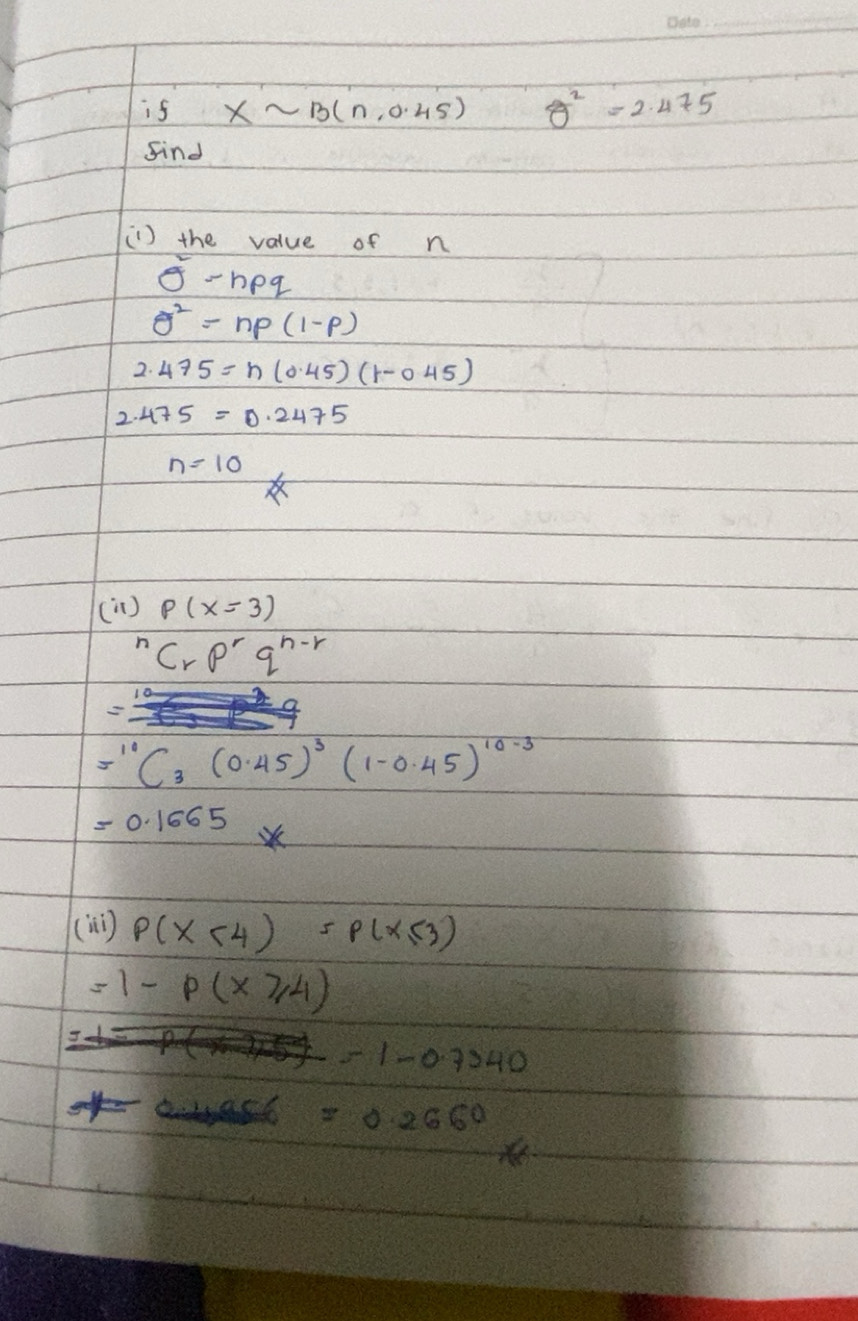 Date
if X ~ B(n, 0.45) σ² = 2.475
find
(i) the value of n
σ² = npq
σ² = np (1-p)
2.475 = n (0.45) (1-0.45)
2.475 = 0.2475
n = 10
(ii) P(x=3)
ⁿCᵣ pʳ qⁿ⁻ʳ
=
= ¹⁰C₃ (0.45)³ (1-0.45)¹⁰⁻³
= 0.1665
(iii) P(X < 4) = P(x ≤ 3)
= 1 - P(x ≥ 4)
= 1 - 0.7340
= 0.2660